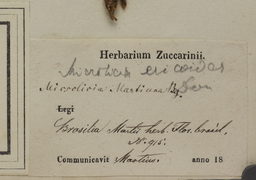 Herbarium Zuccarinii.
Microlicia ericoides
Microlicia Martiana Don
Legi
Brasilia Martii herb. Flor. brasil.
No. 916.
Communicavit Martius. anno 18